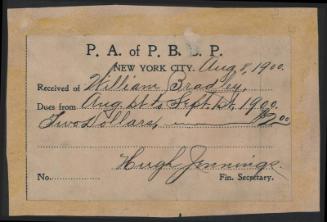 P. A. of P. B. B. P.
NEW YORK CITY, Aug 8, 1900.
Received of William Bradley,
Dues from Aug 1st to Sept 1st, 1900.
Two Dollars, $2.00
Hugh Jennings.
No. Fin. Secretary.